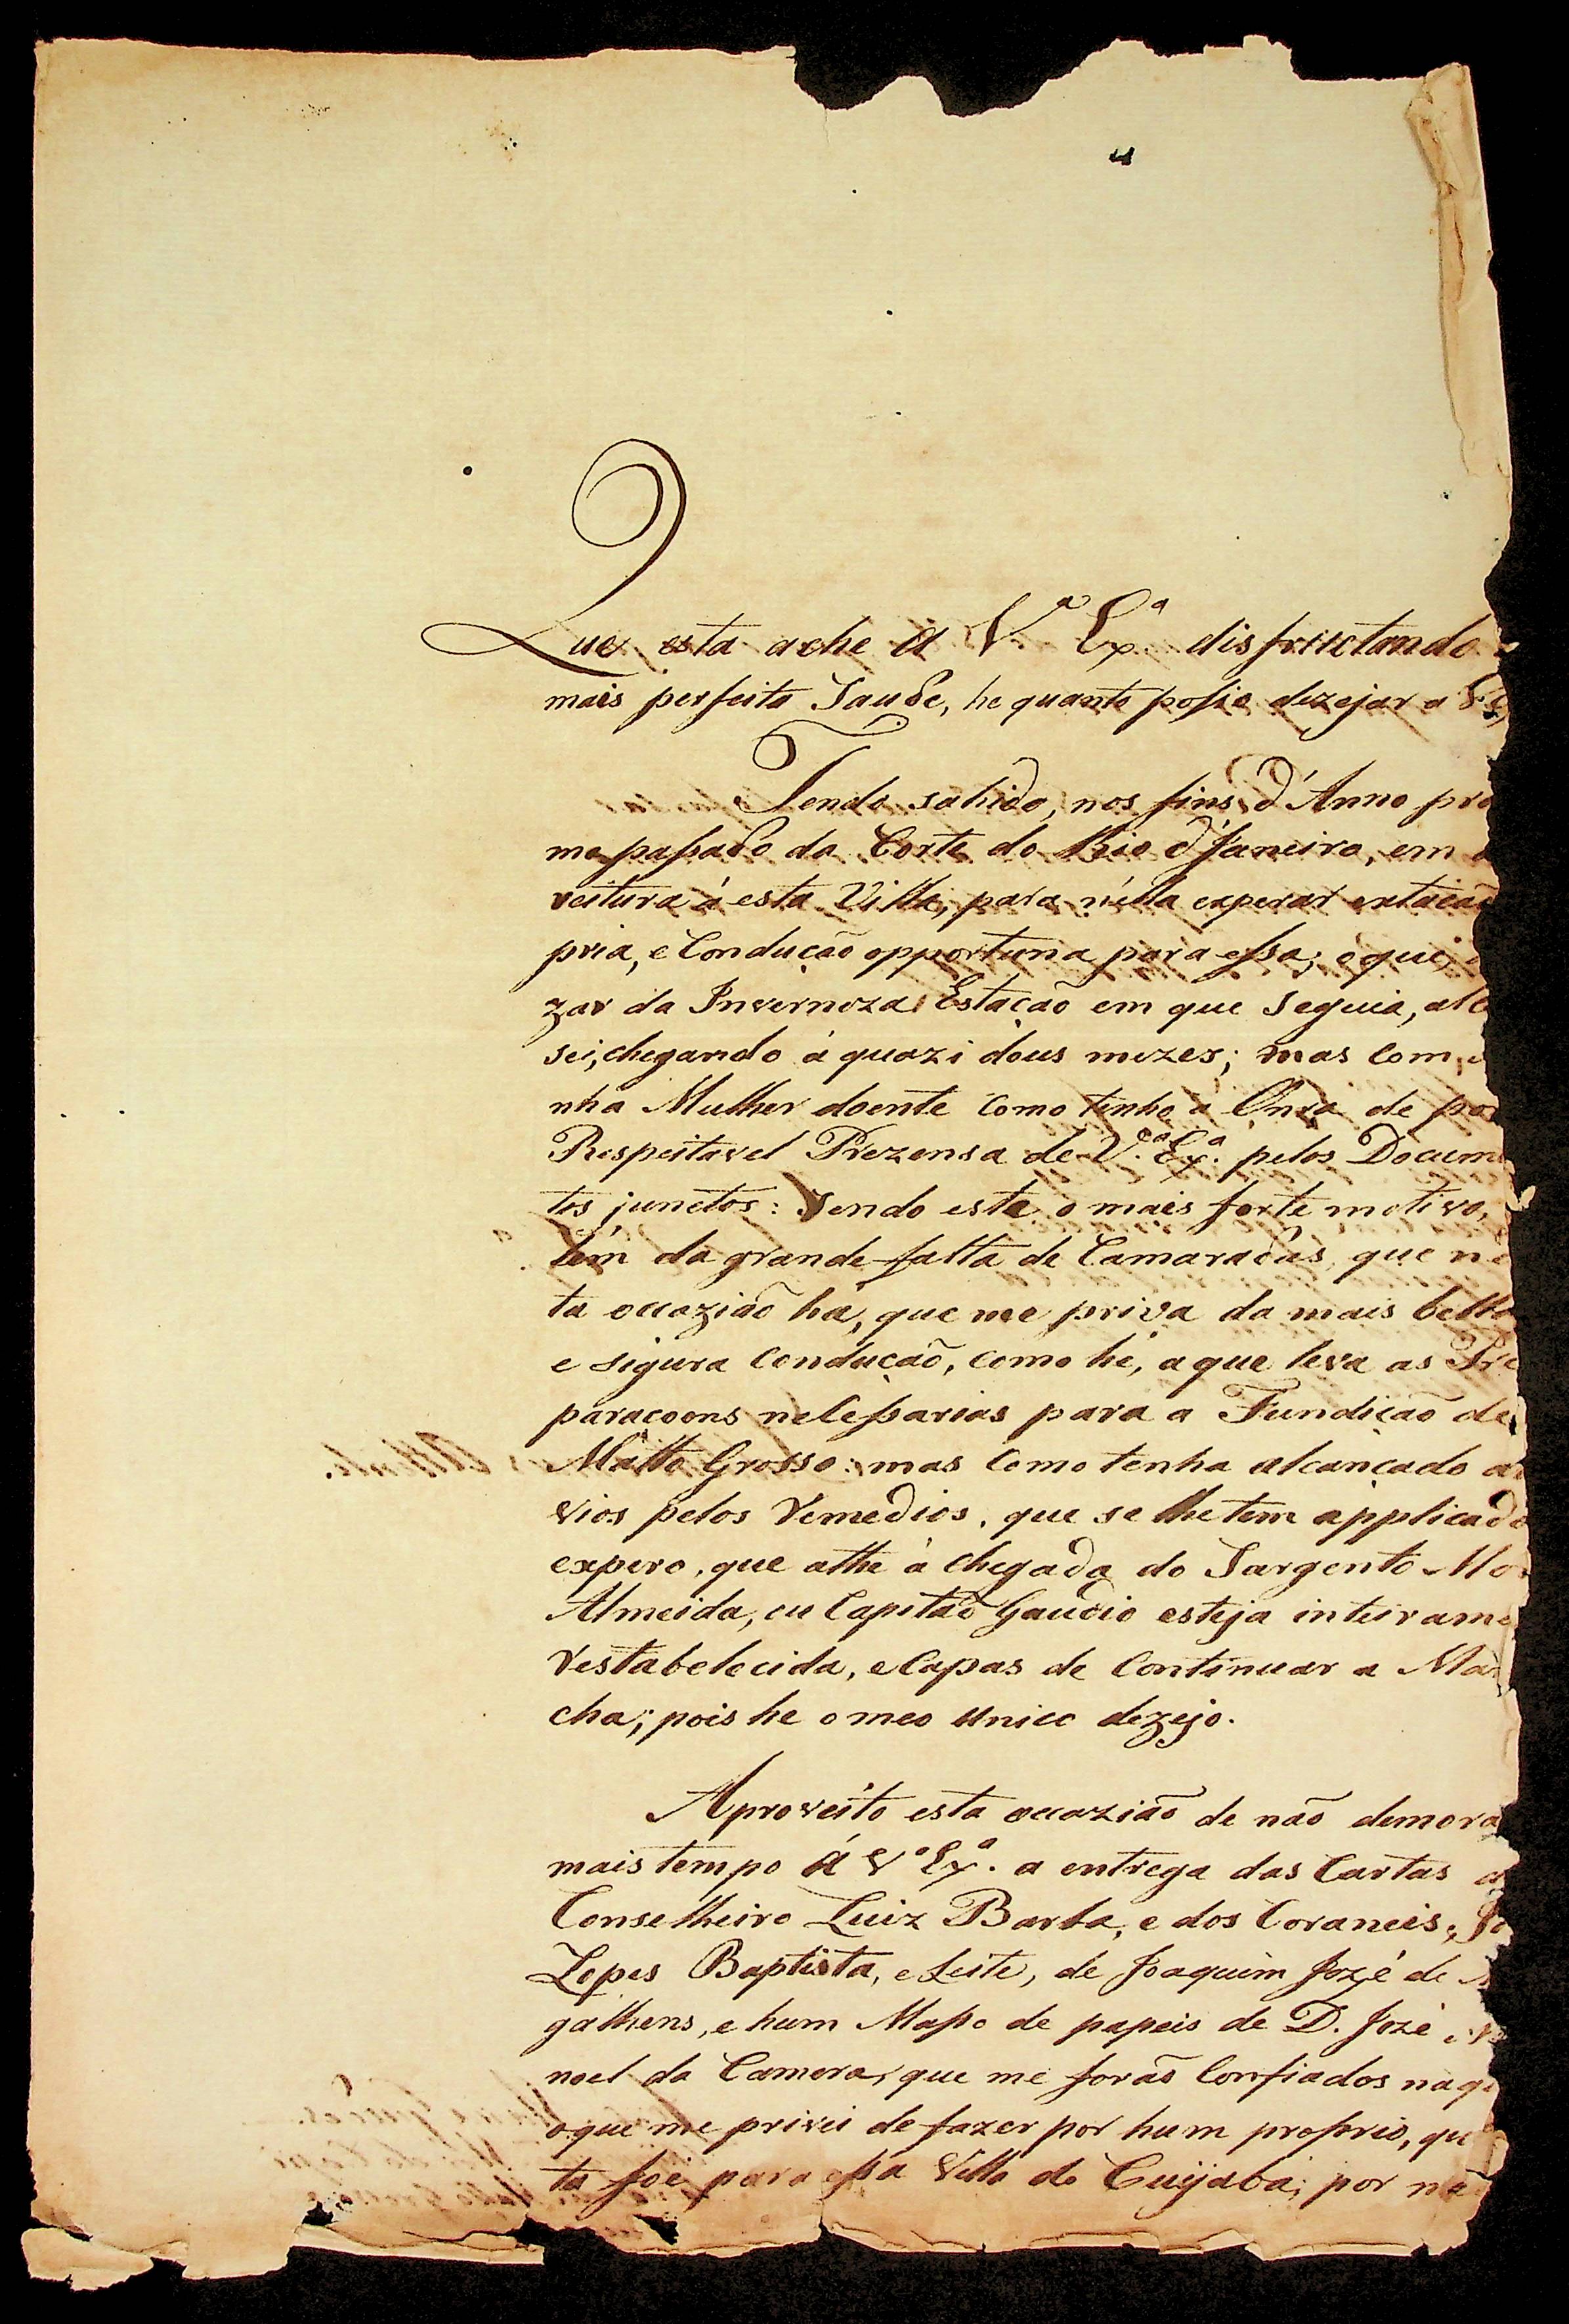 Que esta ache á V.ª Ex.ª disfructando
mais perfeita Saude, he quanto posso dezejar a
Tendo sahido, nos fins d'Anno pro
mo passado da Corte do Rio d'Janeiro, em
veitura á esta Villa, para n'ella experar estacaõ
pria, e Conduçaõ opportuna para essa; o que,
zar da Invernoza Estaçaõ em que Seguia, alc
sei, chegando á quazi dous mezes; mas com
nha Mulher doente Como tenho a Onra de por
Respeitavel Prezensa de V.ª Ex.ª pelos Docum
tos junctos: Sendo este o mais forte motivo,
lém da grande falta de Camaradas, que n
ta occaziaõ há, que me priva da mais bella
e sigura Conduçaõ, como hé, a que leva as Pre
paraçoens necessarias para a Fundiçaõ de
Matto Grosso: mas Como tenha alcançado a
vios pelos remedios, que se lhe tem applicado
expero, que athé á Chegada do Sargento Mor
Almeida, ou Capitaõ Gaudio esteja inteirame
restabelecida, e Capas de Continuar a Mar
cha; pois he o meo unico dezejo.
Aproveito esta occaziaõ de naõ demora
mais tempo á V.ª Ex.ª a entrega das Cartas d
Conselheiro Luiz Barba, e dos Coroneis, Jo
Lopes Baptista, e Leite, de Joaquim Jozé de
galhens, e hum Masso de papeis de D. Jozé
noel da Camera, que me foraõ Confiados na
o que me privei de fazer por hum proprio, qu
ta foi para essa Villa do Cuijabá; por na